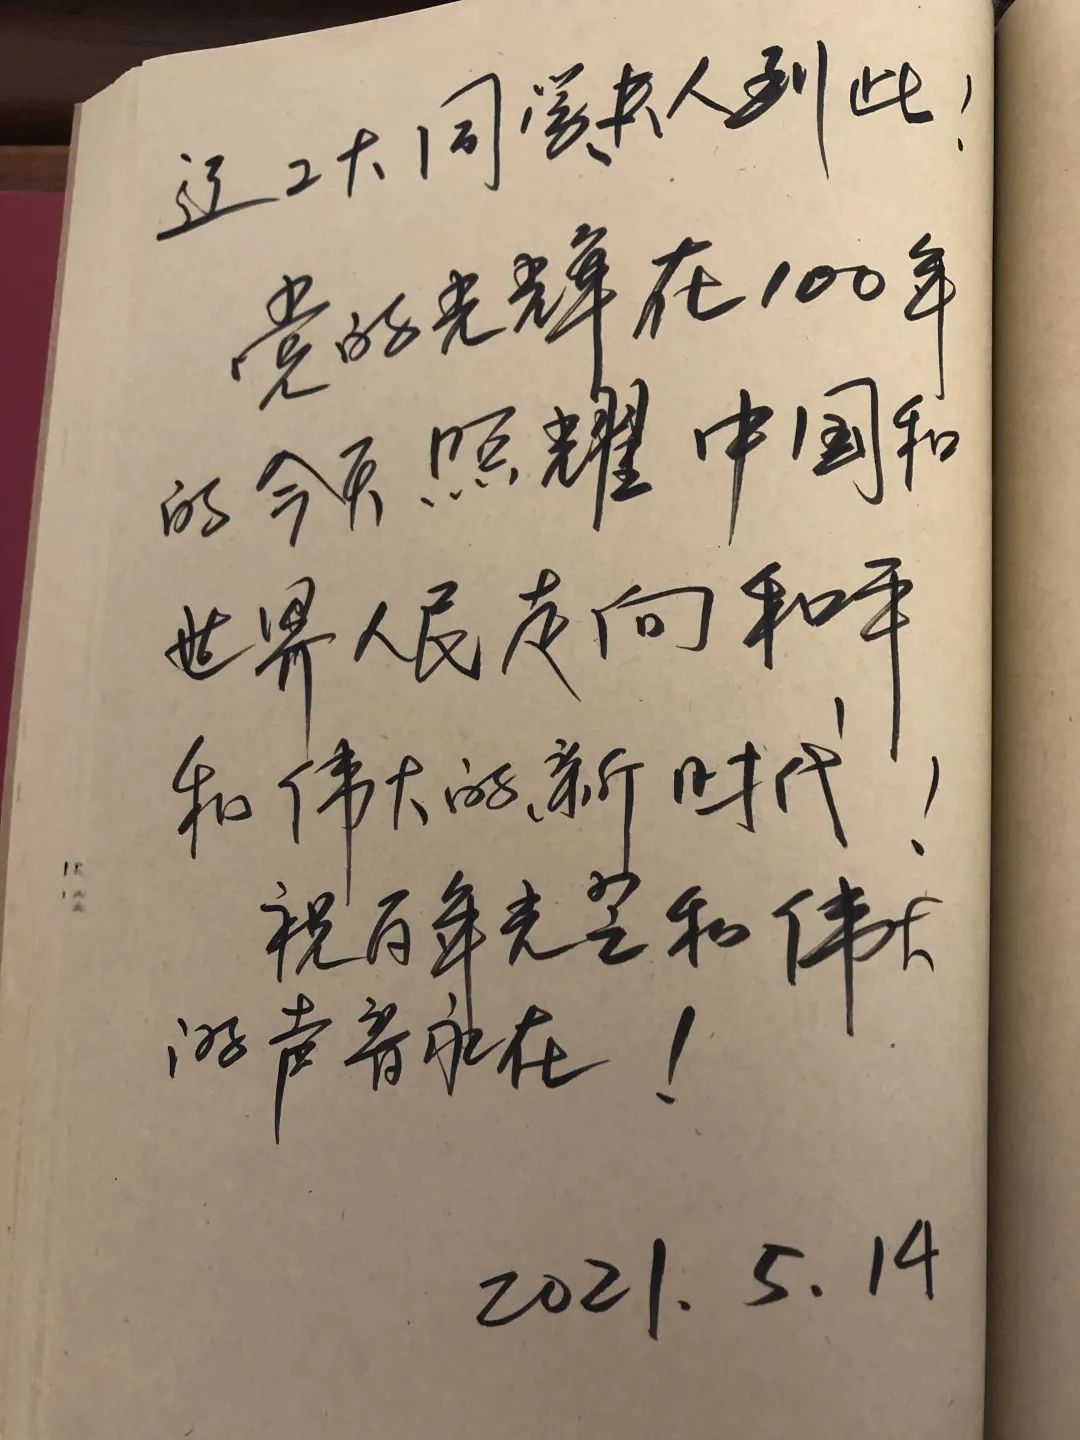 辽工大同学夫人到此！
党的光辉在100年
的今天照耀中国和
世界人民走向和平
和伟大的新时代！
祝百年光芒和伟大
的声音永在！
2021.5.14